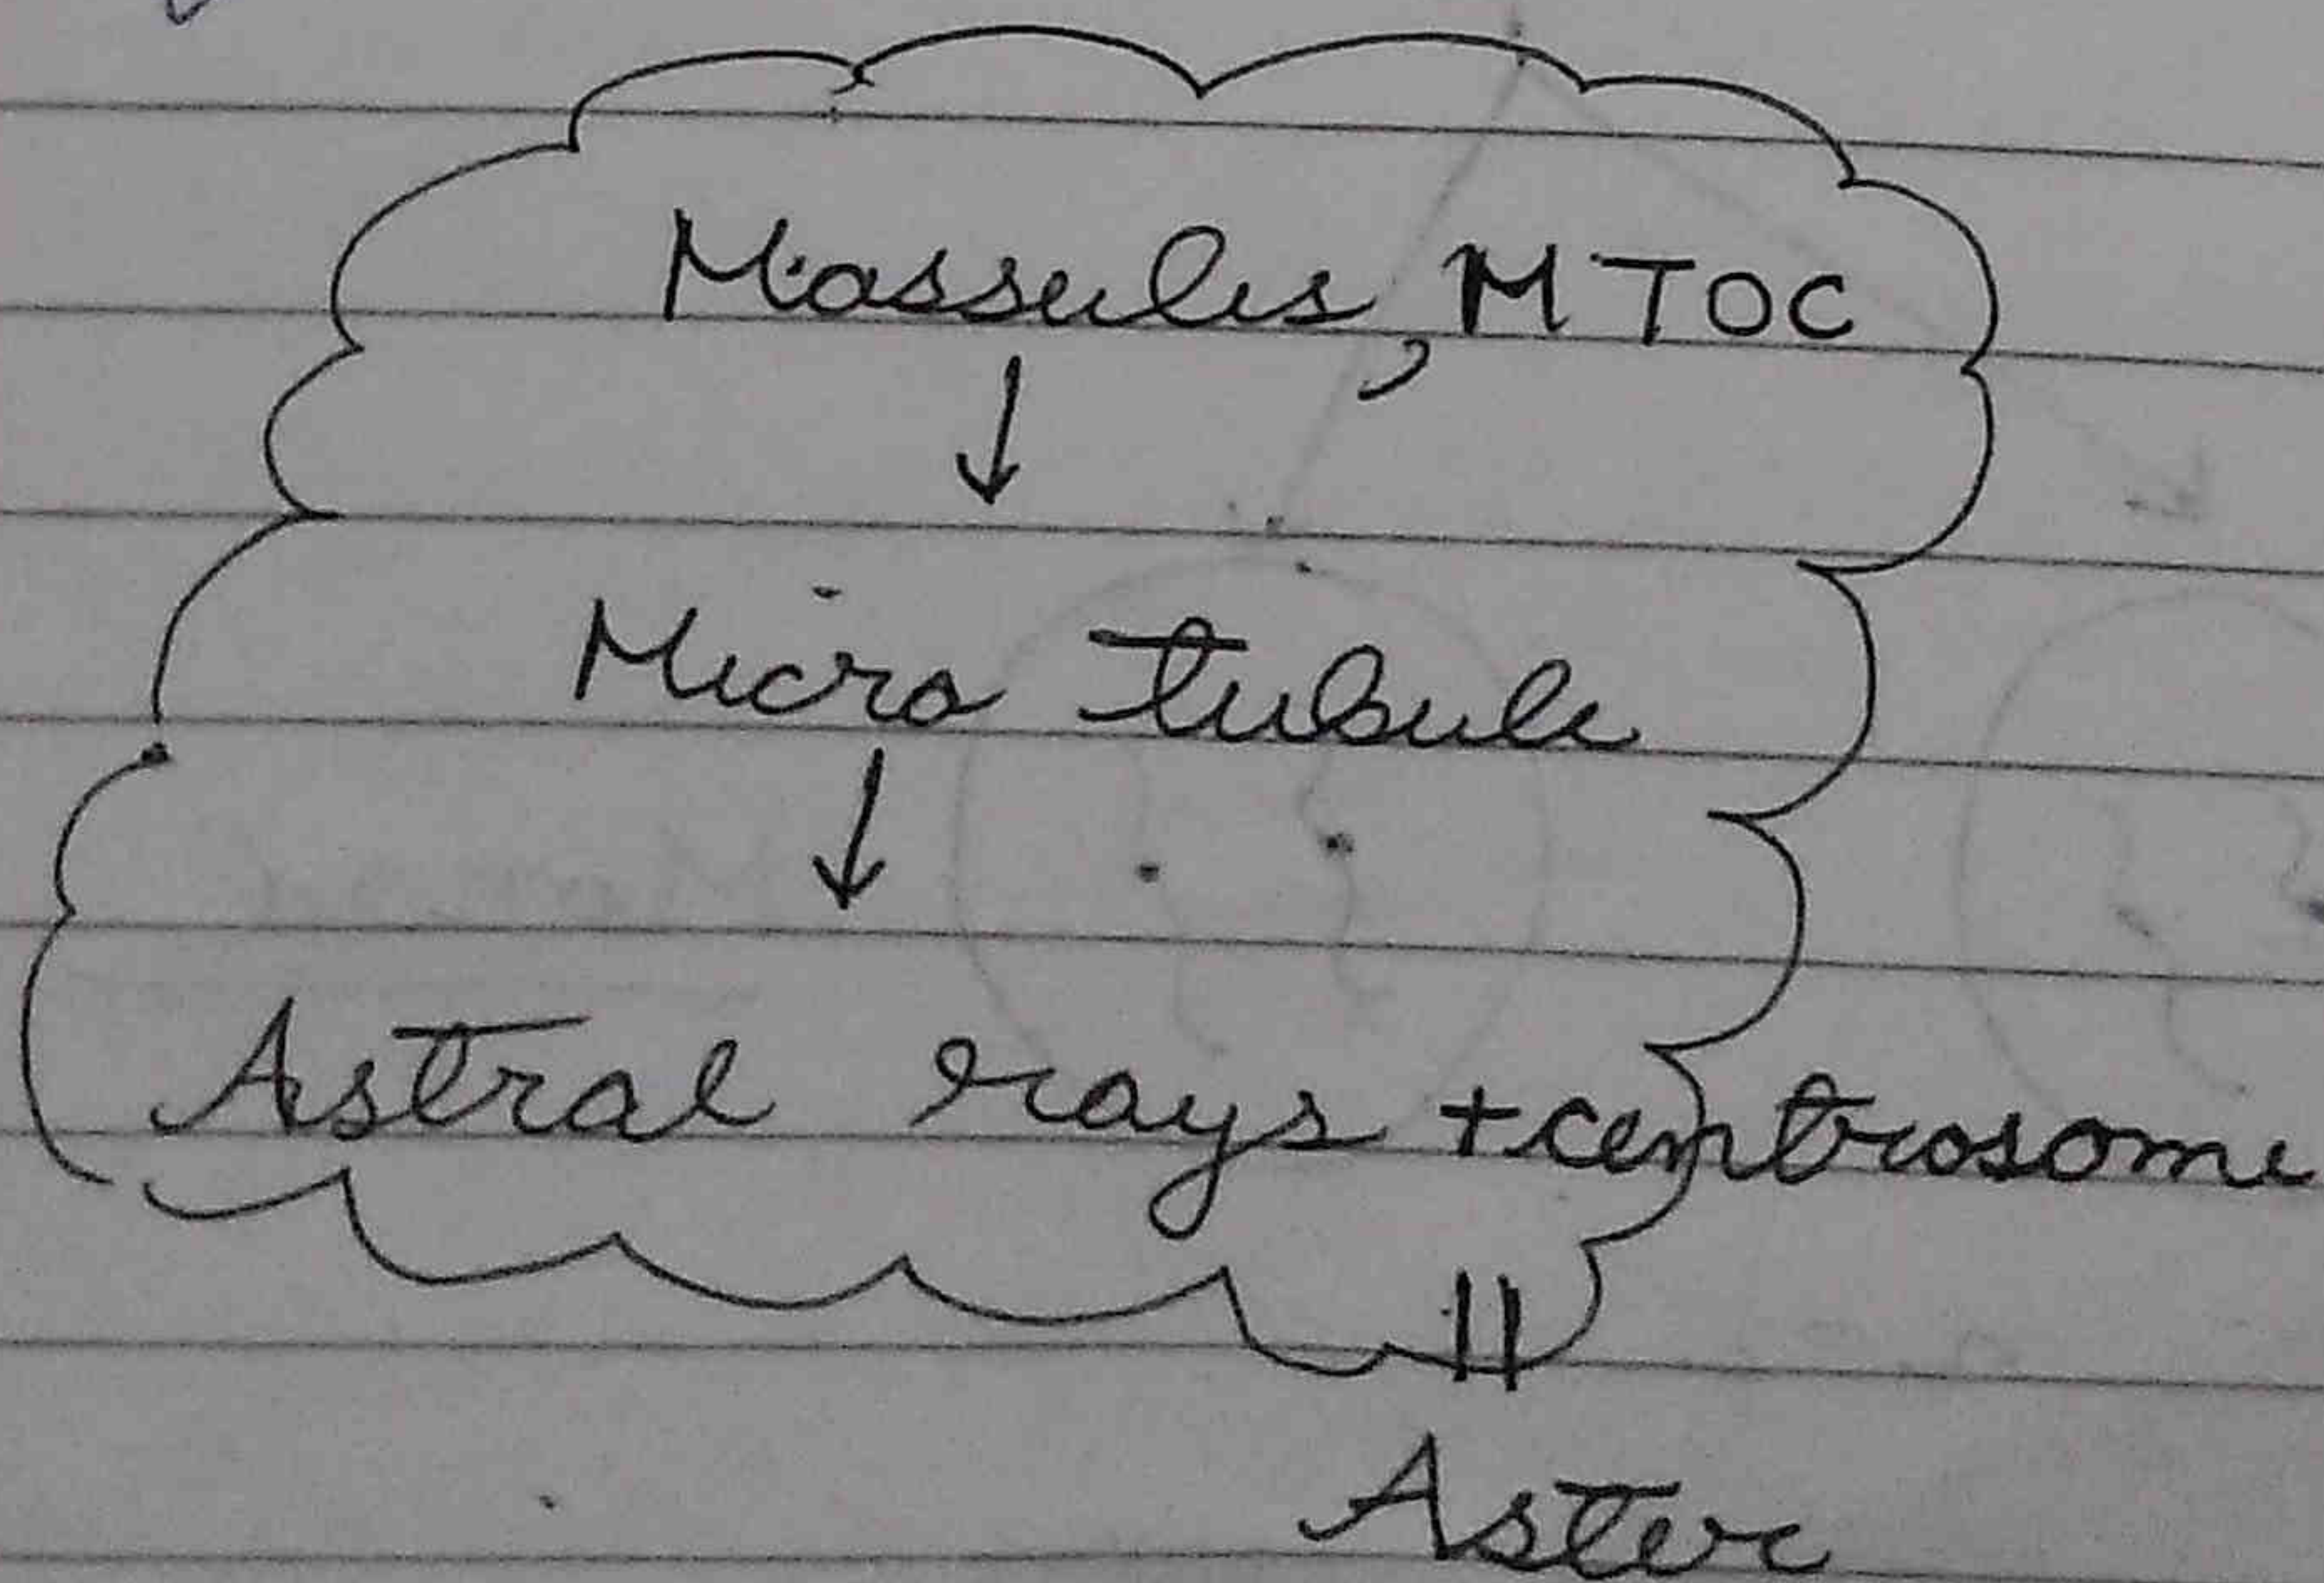 Massules, MTOC
↓
Micro tubule
↓
Astral rays + centrosome
||
Aster